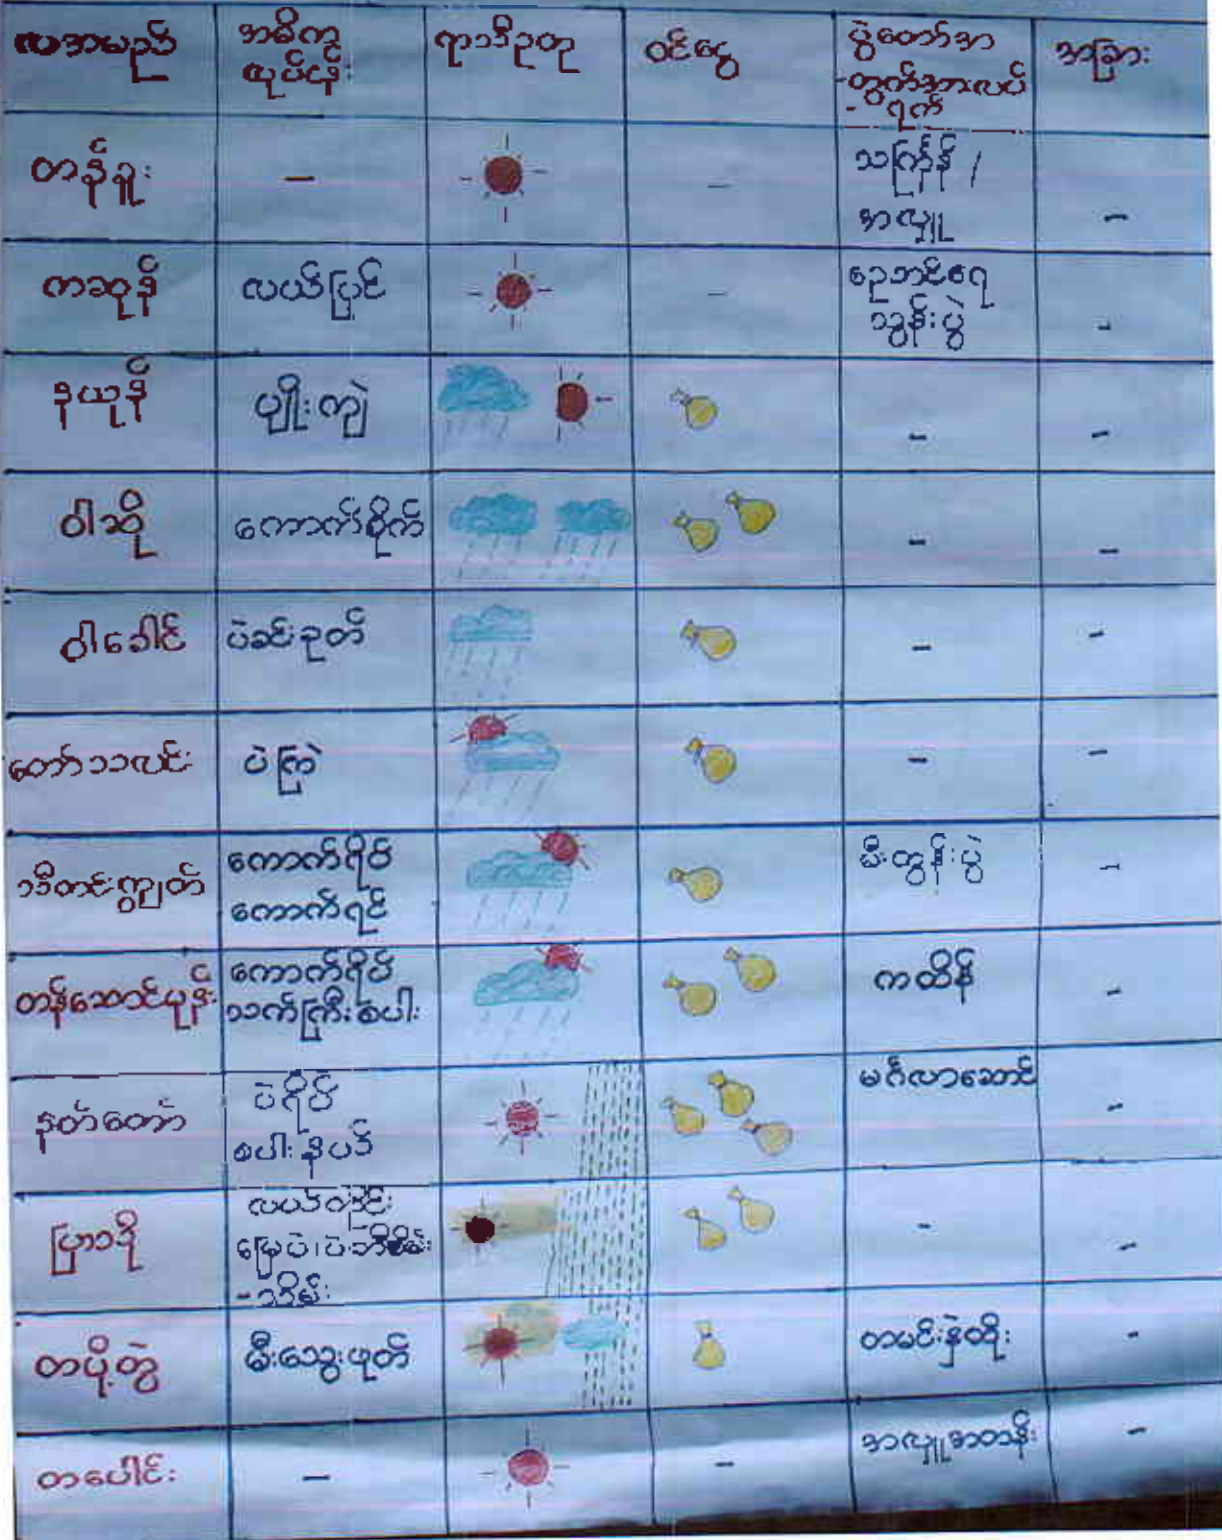 လအမည်
အဓိက
လုပ်ငန်း
ရာသီဥတု
ဝင်ငွေ
ပွဲတော်အ
-တွက်အားလပ်
-ရက်
အခြား
တန်ခူး
-
-
သင်္ကြန် /
အလှူ
-
ကဆုန်
လယ်ပြင်
-
ညောင်ရေ
သွန်းပွဲ
-
နယုန်
ပျိုးကျဲ
-
-
ဝါဆို
ကောက်စိုက်
-
-
ဝါခေါင်
ပဲခင်းခုတ်
-
-
တော်သလင်း
ပဲကြဲ
-
-
သီတင်းကျွတ်
ကောက်ရိပ်
ကောက်ရင်
မီးတွန်းပွဲ
-
တန်ဆောင်မုန်း
ကောက်ရိပ်
သက်ကြီးစပါး
ကထိန်
-
နတ်တော်
ပဲရိပ်
စပါးနှိပယ်
မင်္ဂလာဆောင်
-
ပြာသို
မြေပဲ၊ပဲ
-သိမ်း
-
-
တပို့တွဲ
မီးသွေးဖုတ်
ထမင်းနှဲထိုး
-
တပေါင်း
-
-
အလှူအတန်း
-